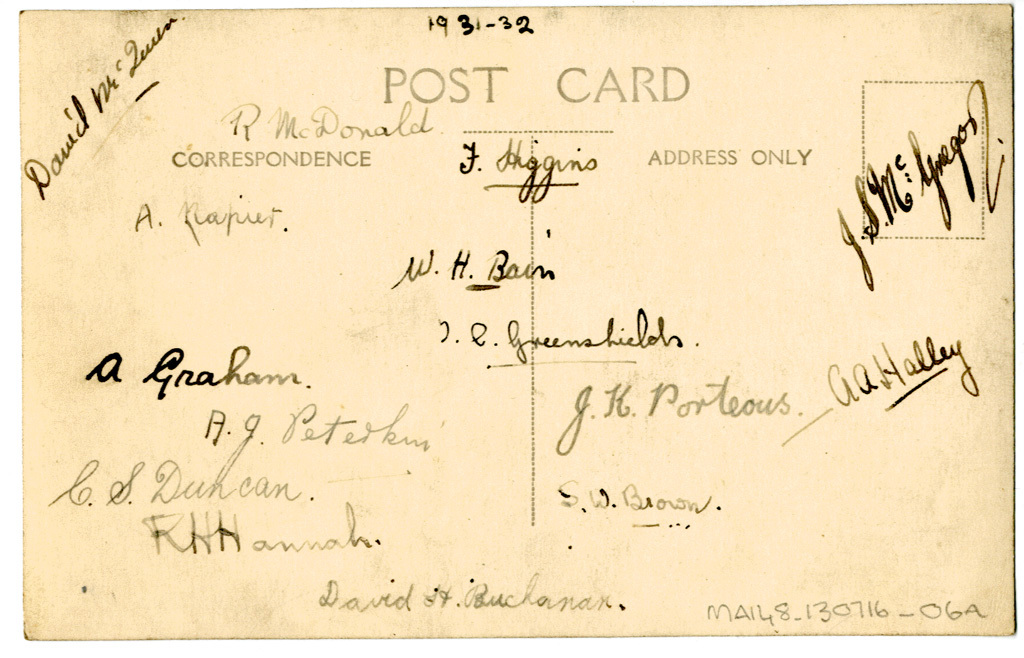 1931-32
David McQueen
POST CARD
R McDonald
CORRESPONDENCE
F. Higgins
ADDRESS ONLY
J. S. McGregor
A. Napier.
W. H. Bain
C. Greenshields.
A Graham.
A A Halley
J. K. Porteous.
A. J. Peterkin
C. S. Duncan.
S. W. Brown.
R H Hannah.
David H. Buchanan.
MA148-130716-06A